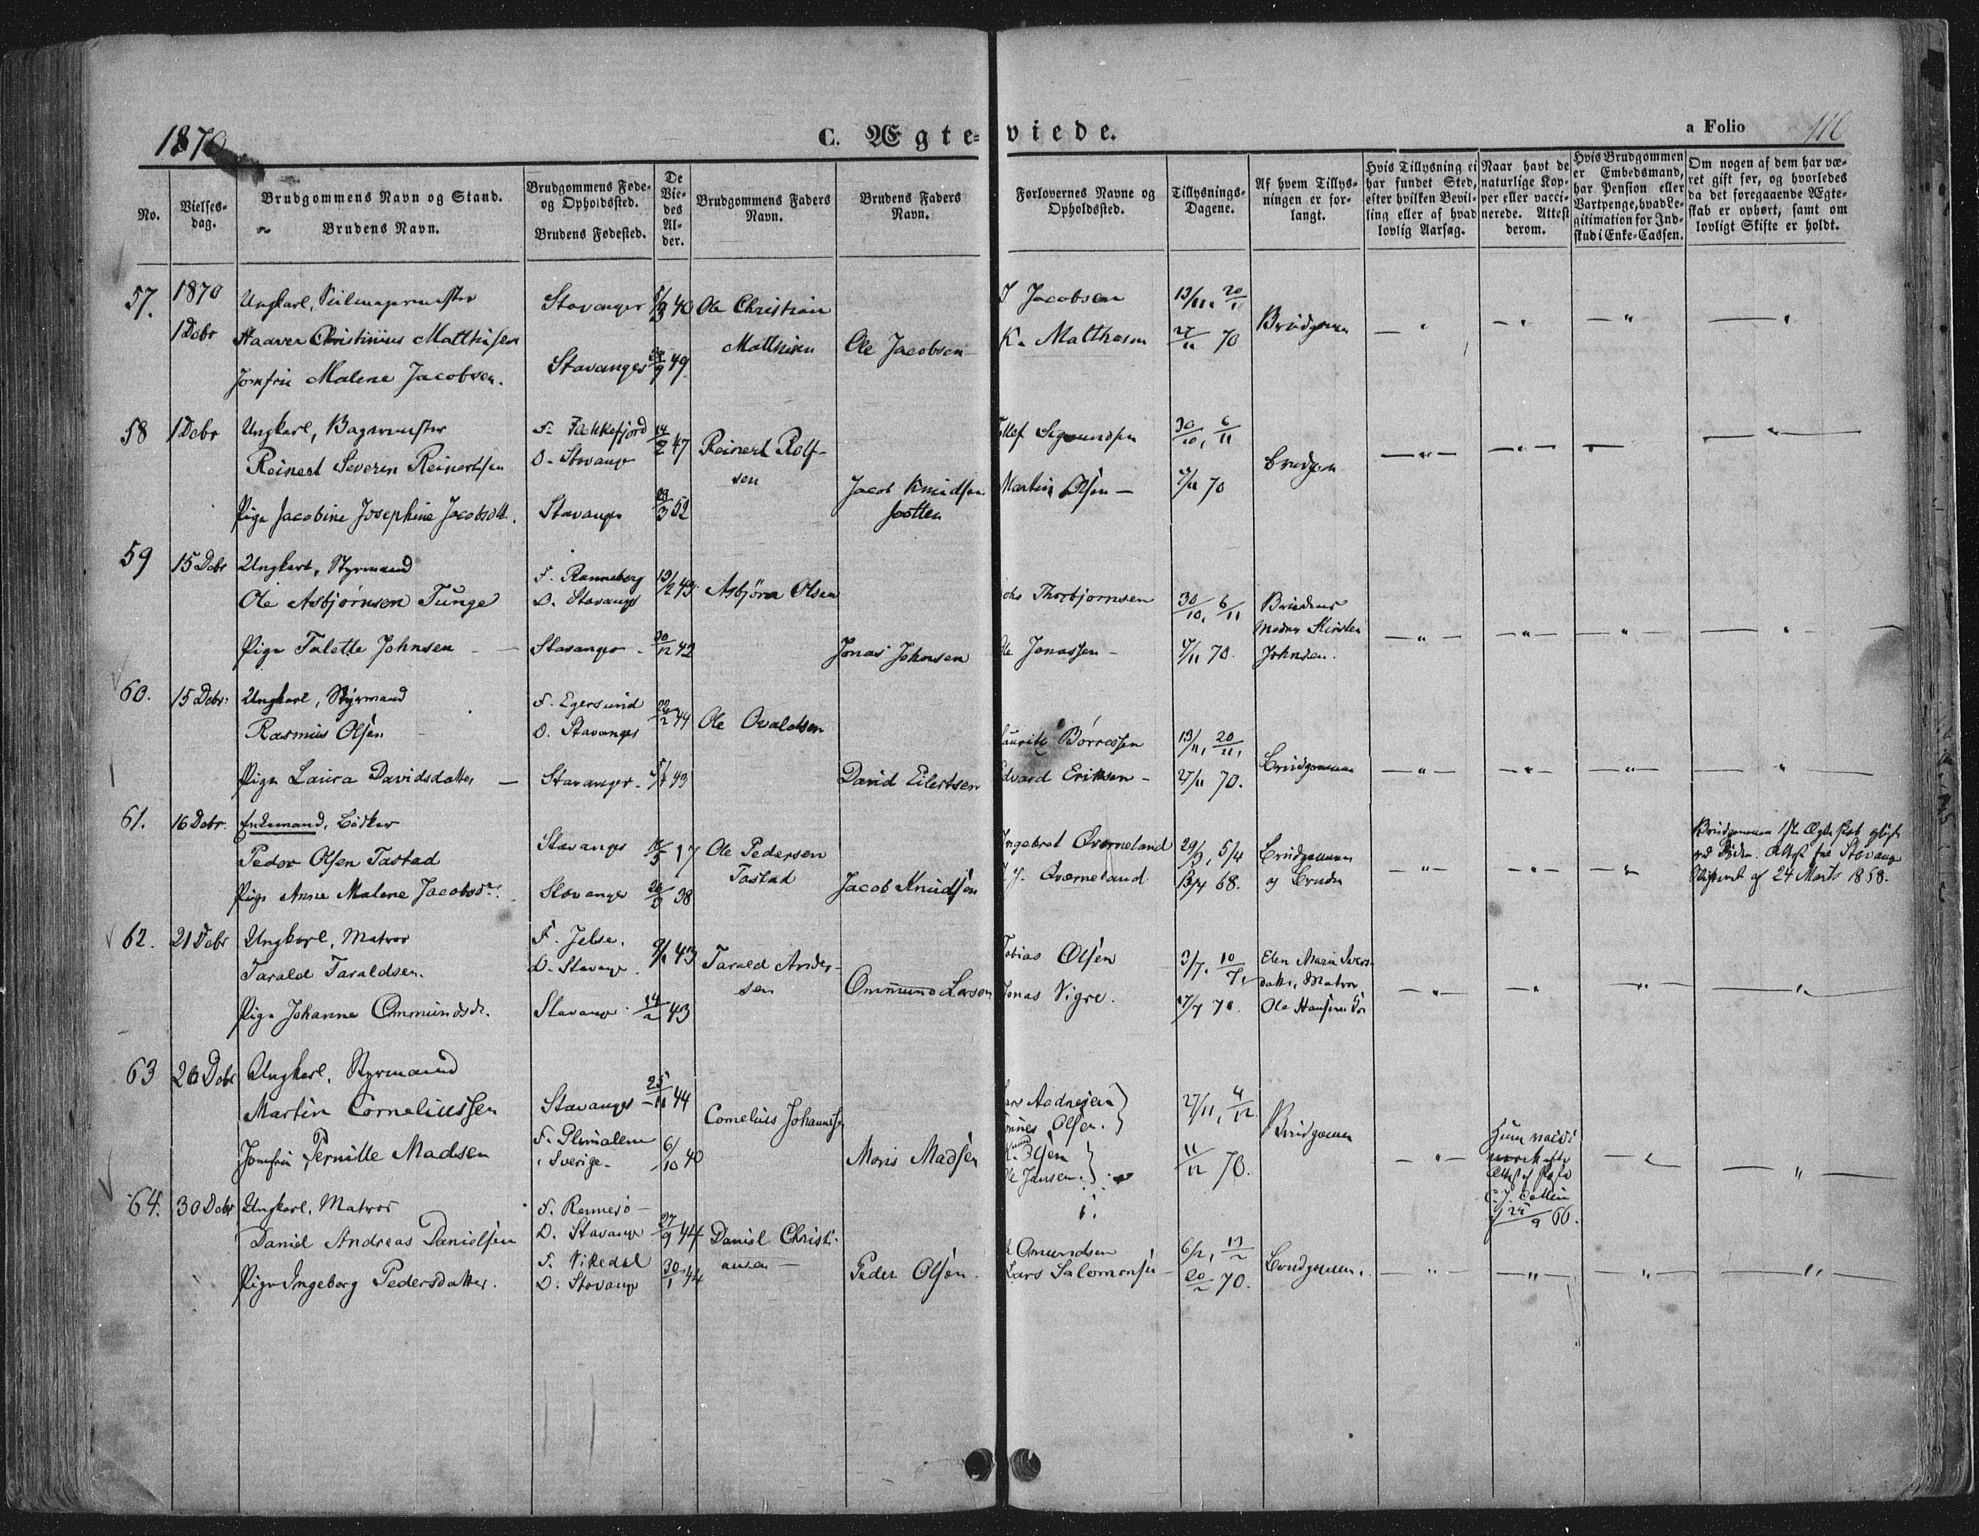 1870
C. Ægte-viede.
a Folio 116
No.
Vielses-
dag.
Brudgommens Navn og Stand.
Brudens Navn.
Brudgommens Føde-
og Opholdssted.
Brudens Fødested.
De
Vie-
des
Al-
der.
Brudgommens Faders
Navn.
Brudens Faders
Navn.
Forlovernes Navne og
Opholdssted.
Tillysnings-
Dagene.
Af hvem Tillys-
ningen er for-
langt.
Hvis Tillysning ei
har fundet Sted,
efter hvilken Bevil-
ling eller af hvad
lovlig Aarsag.
Naar havt de
naturlige Kop-
per eller vacci-
nerede. Attest
derom.
Hvis Brudgommen
er Embedsmand,
har Pension eller
Vartpenge, hvad Le-
gitimation for Ind-
skud i Enke-Cassen.
Om nogen af dem har væ-
ret gift før, og hvorledes
da det foregaaende Ægte-
skab er ophørt, samt om
lovligt Skifte er holdt.
57. 1870
1 Debr
Ungkarl, Seilmagermester
Haaver Christinius Matthisen
Jomfru Malene Jacobsen.
Stavanger
Stavanger 49
Ole Christian
Matthisen
Ole Jacobsen
J Jacobsen
K. Matthesen
13/11, 20/11
27/11 70
Brudgomen
58 1 Debr
Ungkarl, Bagermester
Reinert Severin Reinertsen
Pige Jacobine Josephine Jacobsdtt.
F. Fækkefjord
D. Stavanger
14/2 47
Stavanger 52
Reinert Rolf-
sen
Jacob Knudsen
Jootten
Sigmundsen
Martin Olsen
30/10, 6/11
4/11 70
Brudgom
59 15 Debr
Ungkarl, Styrmand
Ole Asbjørnsen Tunge
Pige Talette Johnsen
F. Ranneberg
D. Stavanger
13/2 43
Stavanger 30/12 42
Asbjørn Olsen
Jonas Johnsen
Thorbjørnsen
Jonassen
30/10, 6/11
4/11 70.
Brudens
Moder Kirsten
Johnsen.
60. 15 Debr.
Ungkarl, Styrmand
Rasmus Olsen
Pige Laura Davidsdatter
F. Egersund
D. Stavanger
22/2 44
Stavanger 43
Ole Ovaldsen
David Eilertsen
Lauritz Børresen
Edvard Eriksen
13/11, 20/11,
27/11 70.
Brudgommen
61. 16 Debr.
Enkemand, Bødker
Peder Olsen Tastad
Pige Anne Malene Jacobsdr.
Stavanger 17
Stavanger 38
Ole Pedersen
Tastad
Jacob Knudsen
Ingebret Øverneland
J. Øverneland
29/3, 5/4
13/4 68.
Brudgommen
og Bruden
Brudgommens 1ste Ægteskab opløst
ved Døden. Attest fra Stavanger
Skifteret af 24 Marts 1858.
62. 21 Debr
Ungkarl, Matros
Tarald Taraldsen.
Pige Johanne Ommundsdr.
F. Jelse.
D. Stavanger
9/1 43
Stavanger 14/2 43
Tarald Ander-
sen
Ommund Larsen
Tobias Olsen
Jonas Vigre.
3/7, 10/7,
17/7 70.
Elen Marie Ivers-
datter, Matros
Ole Hansens
63 26 Debr
Ungkarl, Styrmand
Martin Corneliussen
Jomfru Pernille Madsen
Stavanger 25/11 44
Sverige 6/10 40
Cornelius Johannesen
Mons Madsen
Lars Aadnesen
Tønnes Olsen.
Knud Olsen
Ole Jansen.
27/11, 4/12
11/12 70.
Brudgomen
Hun vacci
Attest af
25/9 66.
64. 30 Debr
Ungkarl, Matros
Daniel Andreas Danielsen
Pige Ingeborg Pedersdatter
F. Rennesø
D. Stavanger
27/9 44
F. Vikedal
D. Stavanger
30/1 44
Daniel Christi-
ansen
Peder Olsen
Omundsen
Lars Salomonsen
6/2, 13/2
20/2 70.
Brudgommen.